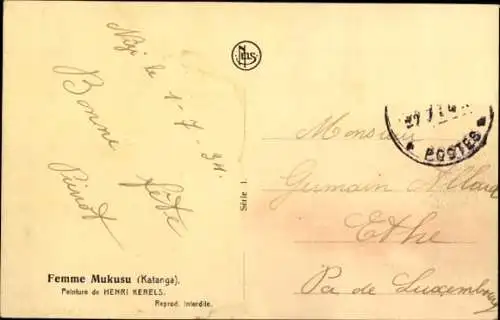 le 1-7-34.
Bonne
fête
Femme Mukusu (Katanga).
Peinture de HENRI KERELS.
Reprod. Interdite.
Série 1.
POSTES
Monsieur
Germain
Ethe
Pce de Luxembourg